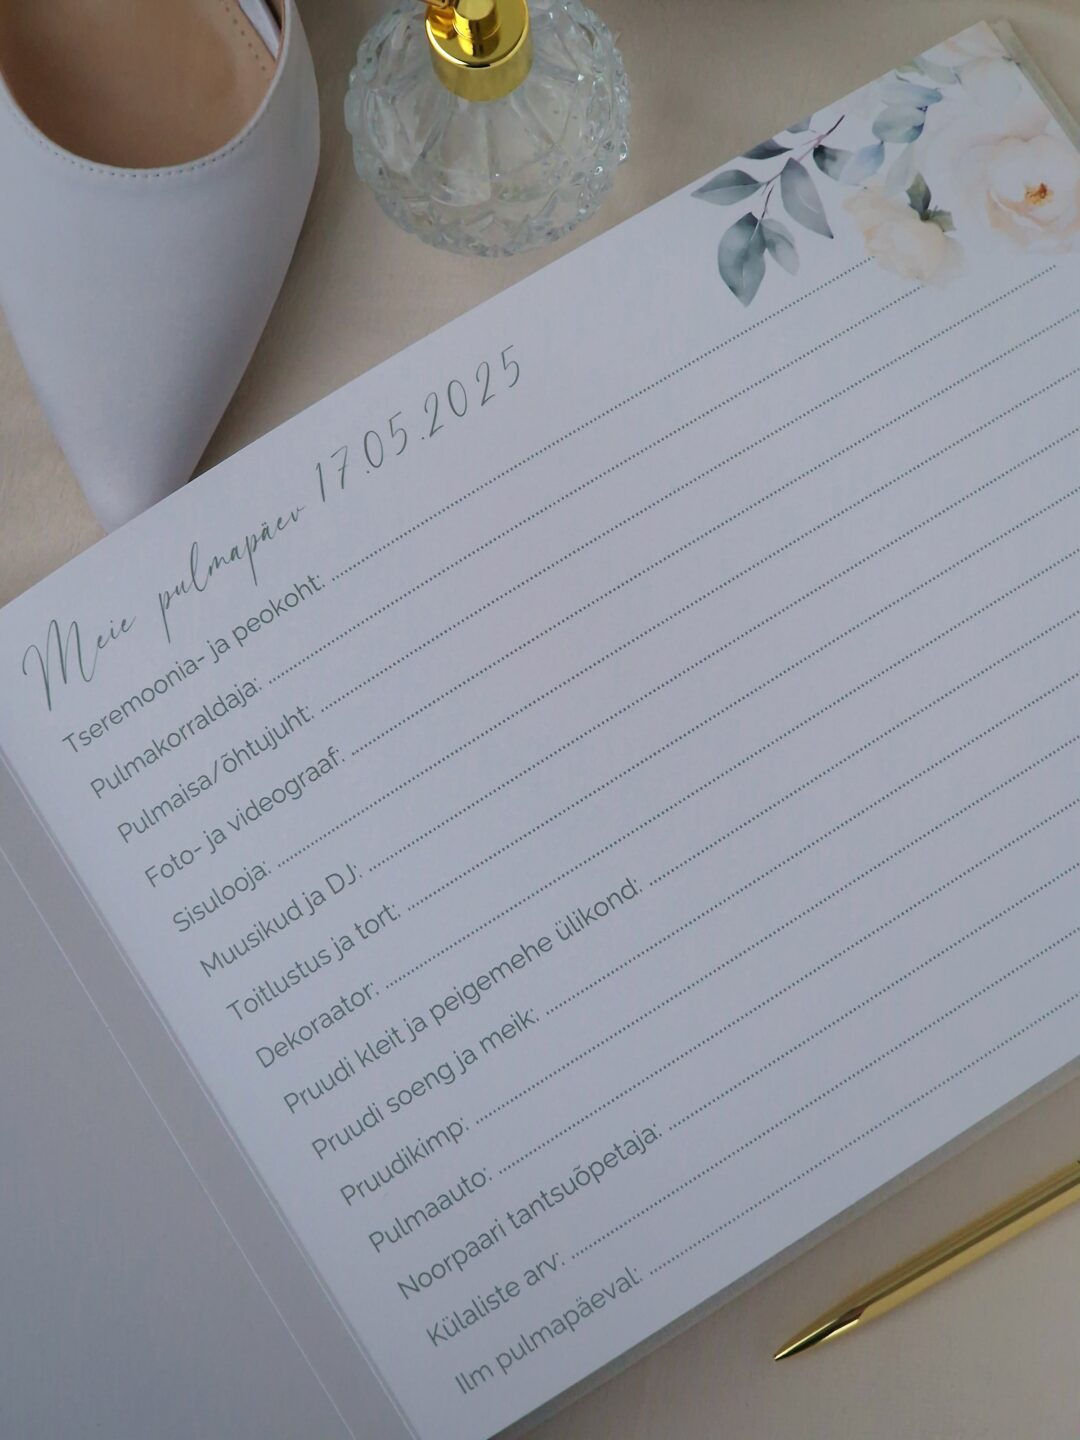 Meie pulmapäev 17.05.2025
Tseremoonia- ja peokoht:
Pulmakorraldaja:
Pulmaisa/õhtujuht:
Foto- ja videograaf:
Sisulooja:
Muusikud ja DJ:
Toitlustus ja tort:
Dekoraator:
Pruudi kleit ja peigemehe ülikond:
Pruudi soeng ja meik:
Pruudikimp:
Pulmaauto:
Noorpaari tantsuõpetaja:
Külaliste arv:
Ilm pulmapäeval: